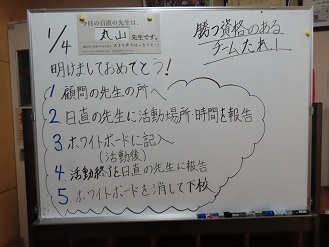 1/4
今日の日直の先生は、
丸山 先生です。
勝つ資格のある
チームたれ！
明けましておめでとう！
1 顧問の先生の所へ
2 日直の先生に活動場所・時間を報告
3 ホワイトボードに記入
(活動後)
4. 活動終了を日直の先生に報告
5. ホワイトボードを消して下校